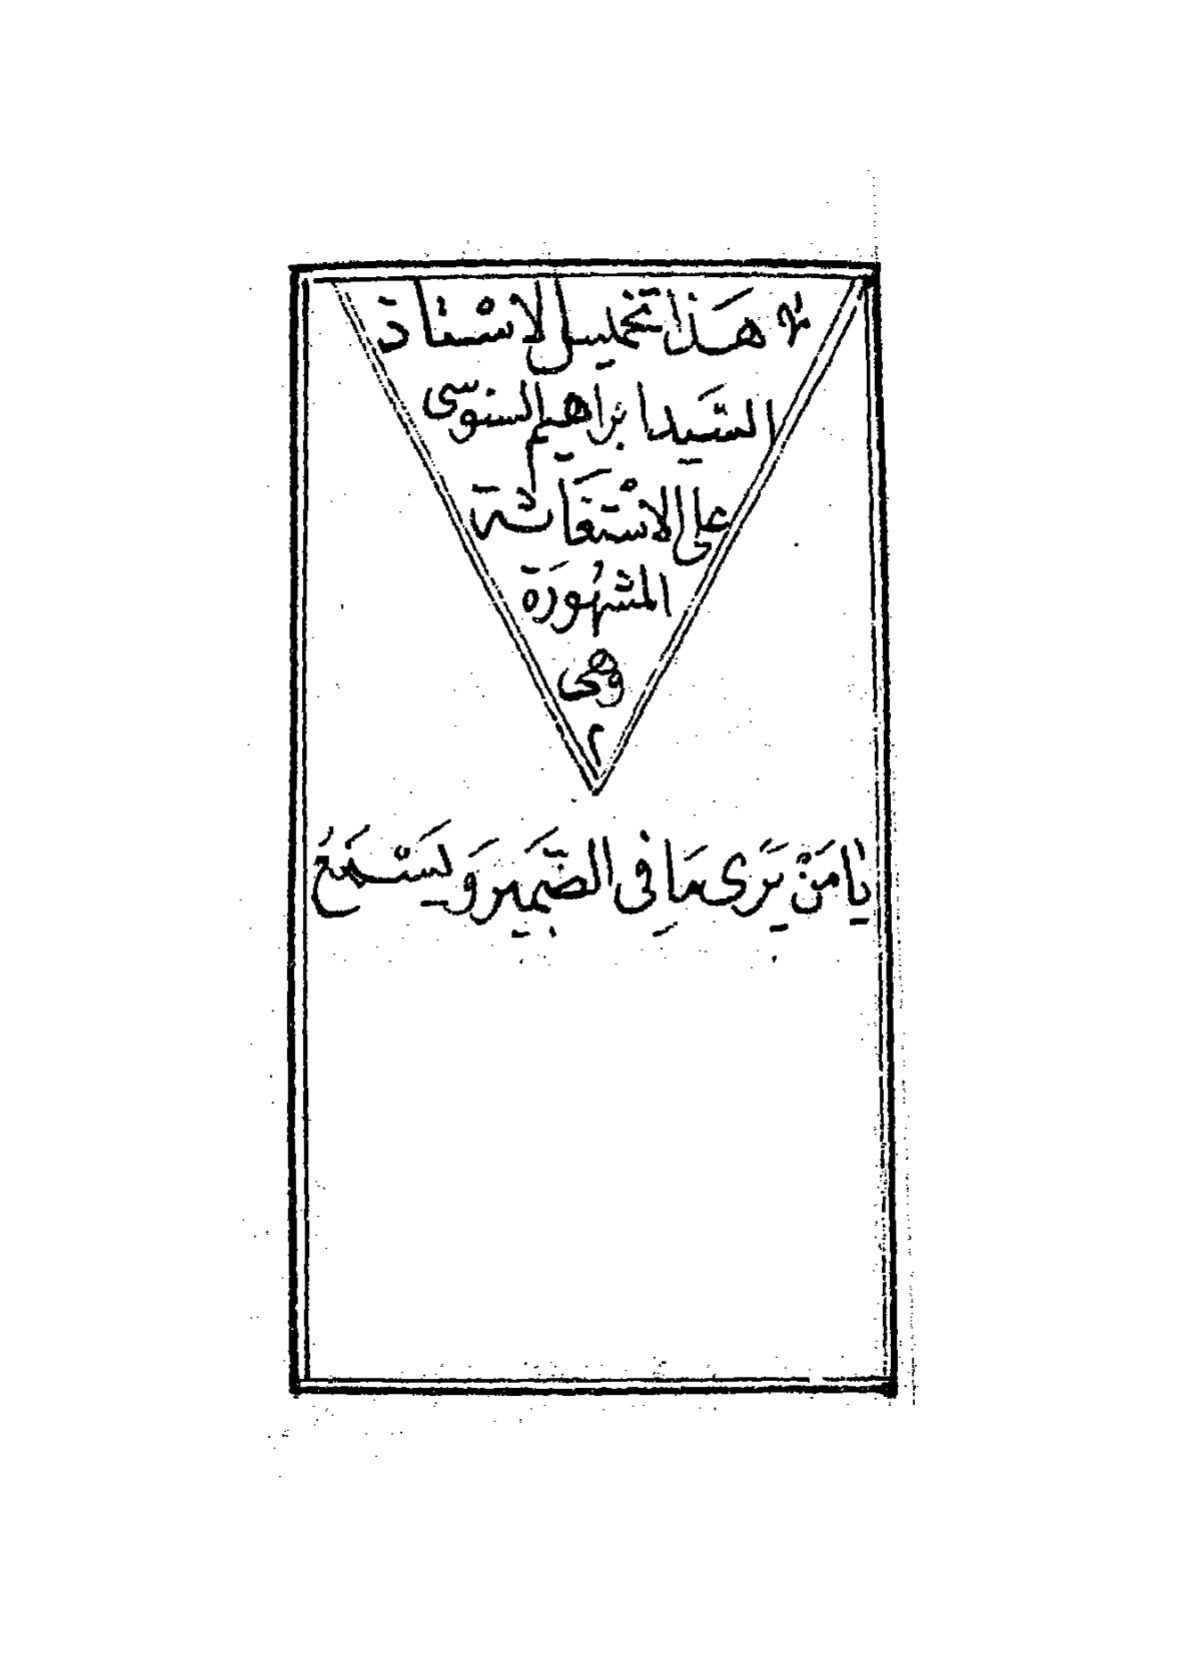 هَذَا تخميس لاسْتاذ
السَّيد ابراهيم السنوسى
على الاسْتغَاثة
المشهُورَة
وهى
يَا مَنْ يَرَى مَا فِى الضَّمِيرِ وَيَسْمَعُ